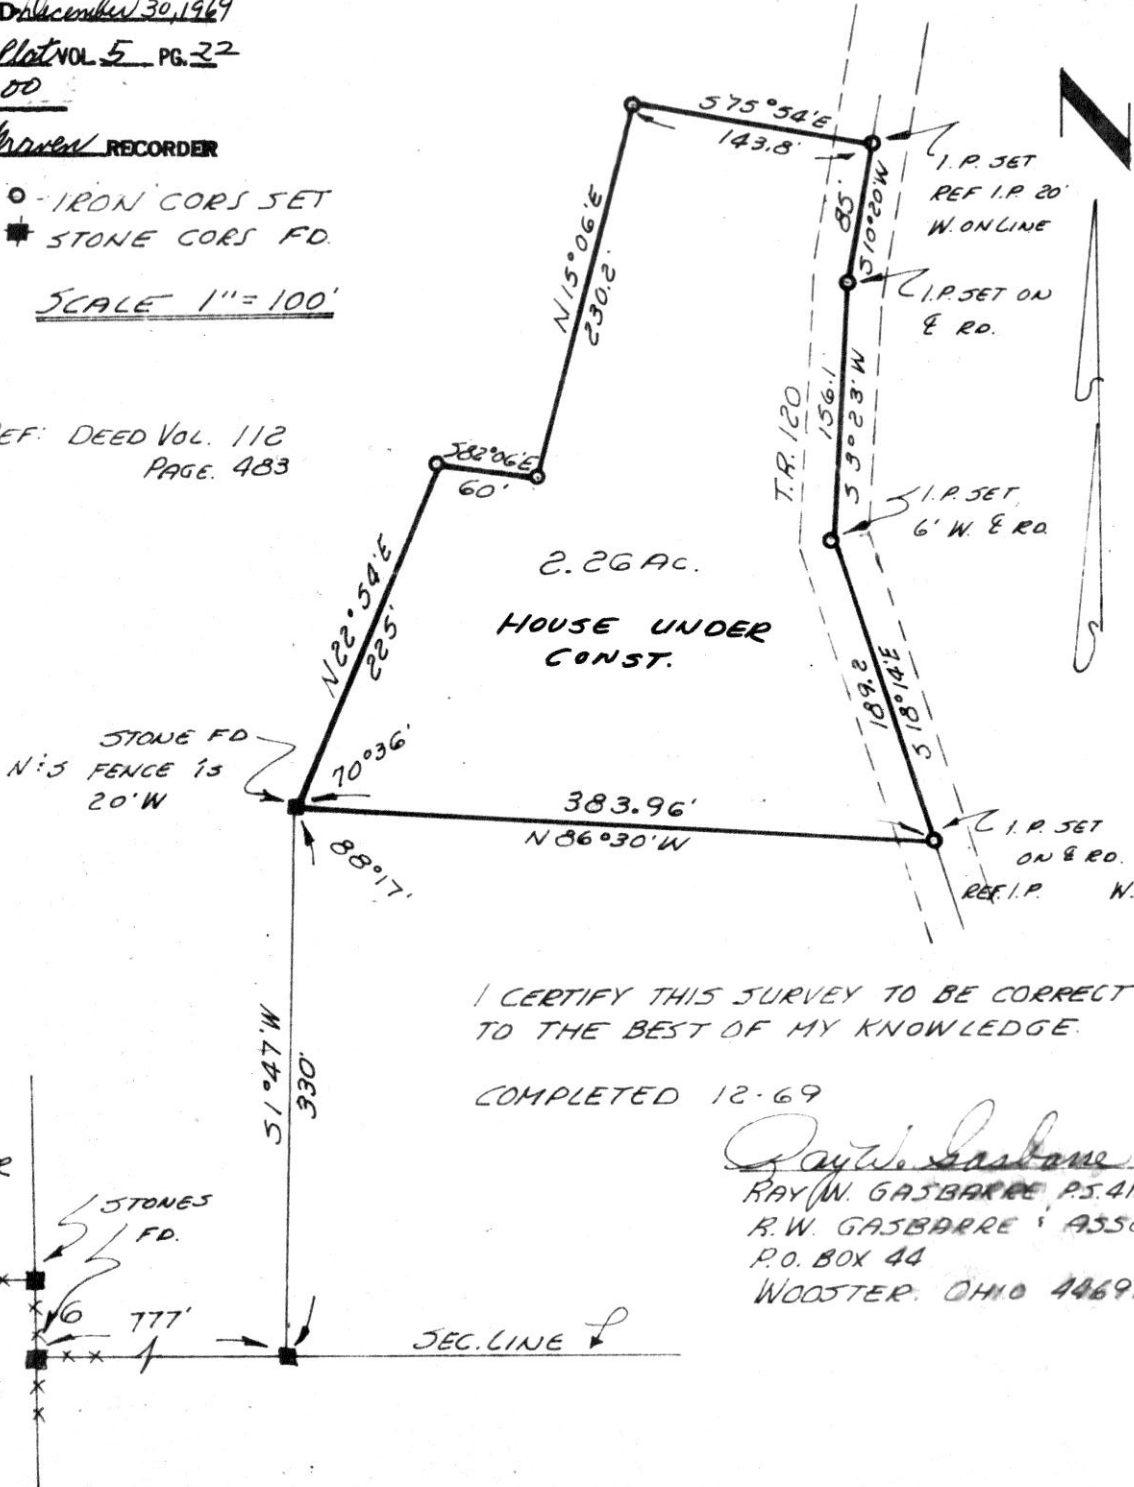 D December 30, 1969
Plat VOL. 5 PG. 22
00
RECORDER
- IRON CORS SET
STONE CORS FD.
SCALE 1" = 100'
EF: DEED VOL. 112
PAGE. 483
N
S75°54'E
143.8'
I.P. SET
REF I.P. 20'
W. ON LINE
85'
S10°20'W
I.P. SET ON
℄ RD.
N15°06'E
230.2'
T.R. 120
156.1'
S3°23'W
S82°06'E
60'
I.P. SET
6' W. ℄ RD.
2.26 AC.
HOUSE UNDER
CONST.
N22°54'E
225'
189.2
S18°14'E
STONE FD
N & S FENCE is
20' W
70°36'
383.96'
N86°30'W
88°17'
I.P. SET
ON ℄ RD.
REF. I.P. W.
S1°47'W
330'
I CERTIFY THIS SURVEY TO BE CORRECT
TO THE BEST OF MY KNOWLEDGE.
COMPLETED 12-69
Ray W. Gasbarre
RAY W. GASBARRE P.S. 41
R.W. GASBARRE & ASSO
P.O. BOX 44
WOOSTER. OHIO 4469
STONES
FD.
6
777'
SEC. LINE